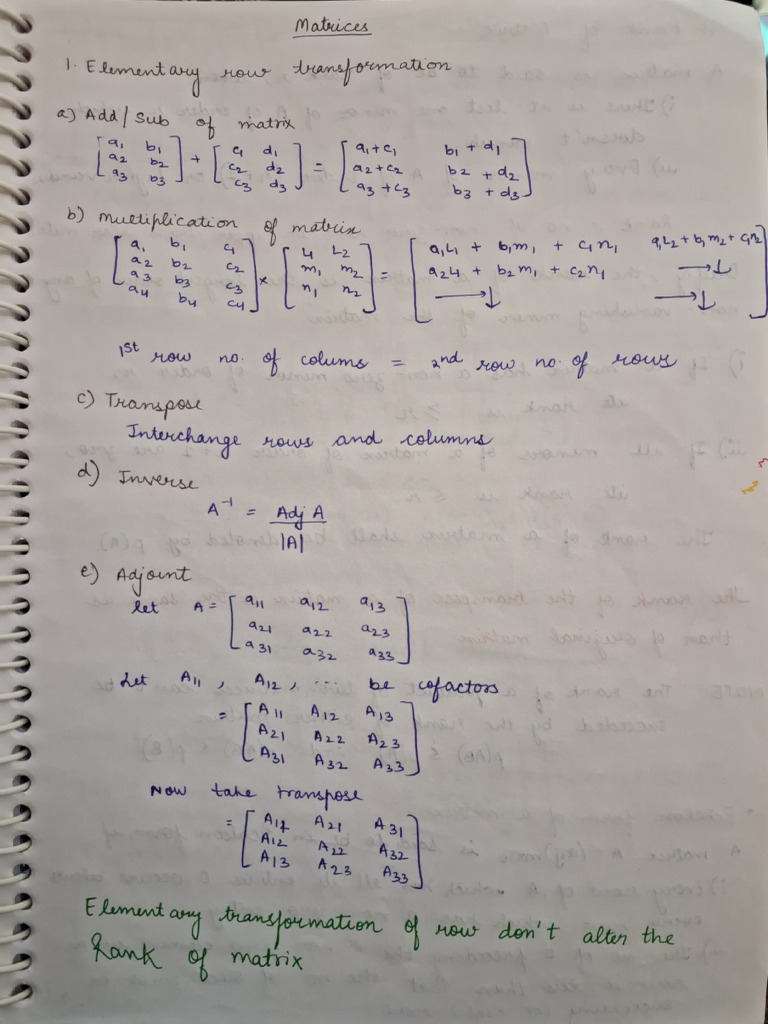 Matrices
1. Elementary row transformation
a) Add/Sub of matrix
[a₁ b₁] + [c₁ d₁] = [a₁+c₁ b₁+d₁]
[a₂ b₂] [c₂ d₂] [a₂+c₂ b₂+d₂]
[a₃ b₃] [c₃ d₃] [a₃+c₃ b₃+d₃]
b) multiplication of matrix
[a₁ b₁ c₁] [L₁ L₂] [a₁L₁ + b₁m₁ + c₁n₁ a₁L₂+b₁m₂+c₁n₂]
[a₂ b₂ c₂] × [m₁ m₂] = [a₂L₁ + b₂m₁ + c₂n₁ →↓]
[a₃ b₃ c₃] [n₁ n₂] [→↓ →↓]
[a₄ b₄ c₄]
1st row no. of colums = 2nd row no. of rows
c) Transpose
Interchange rows and columns
d) Inverse
A⁻¹ = Adj A
|A|
e) Adjoint
let A = [a₁₁ a₁₂ a₁₃]
[a₂₁ a₂₂ a₂₃]
[a₃₁ a₃₂ a₃₃]
Let A₁₁, A₁₂, ... be cofactors
= [A₁₁ A₁₂ A₁₃]
[A₂₁ A₂₂ A₂₃]
[A₃₁ A₃₂ A₃₃]
Now take transpose
= [A₁₁ A₂₁ A₃₁]
[A₁₂ A₂₂ A₃₂]
[A₁₃ A₂₃ A₃₃]
Elementary transformation of row don't alter the
Rank of matrix